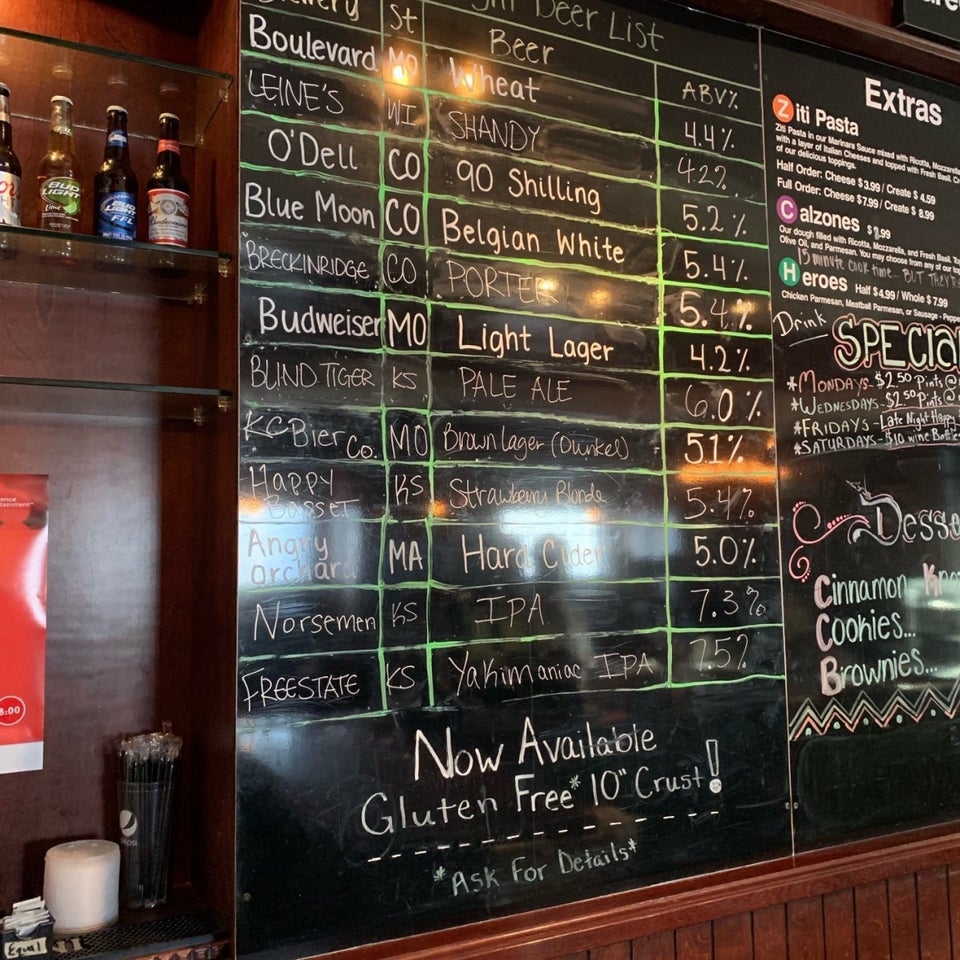 Brewery St Beer List
Beer ABV%
Boulevard MO Wheat 4.4%
LEINE'S WI SHANDY 4.2%
O'Dell CO 90 Shilling 5.2%
Blue Moon CO Belgian White 5.4%
BRECKINRIDGE CO PORTER 5.4%
Budweiser MO Light Lager 4.2%
BLIND TIGER KS PALE ALE 6.0%
KC Bier Co. MO Brown lager (Dunkel) 5.1%
HAPPY BASSET KS Strawberry Blonde 5.4%
Angry orchard MA Hard Cider 5.0%
Norsemen KS IPA 7.3%
FREESTATE KS Yakimaniac IPA 7.5%
Now Available
Gluten Free* 10" Crust!
*Ask For Details*
Extras
Ziti Pasta
Ziti Pasta in our Marinara Sauce mixed with Ricotta, Mozzarella
with a layer of Italian Cheeses and topped with Fresh Basil.
of our delicious toppings.
Half Order: Cheese $3.99 / Create $ 4.59
Full Order: Cheese $7.99 / Create $ 8.99
Calzones $ .99
Our dough filled with Ricotta, Mozzarella, and Fresh Basil.
Olive Oil, and Parmesan. You may choose from any of our
15 minute cook time... BUT THEY'R
Heroes Half $4.99 / Whole $ 7.99
Chicken Parmesan, Meatball Parmesan, or Sausage -
Drink
SPECIA
*MONDAYS- $2.50 Pints @
*WEDNESDAYS- $2.50 Pints @
*FRIDAYS- Late Night Happy
*SATURDAYS- $10 wine Bottle
Desse
Cinnamon Kno
Cookies...
Brownies...
BUD LIGHT
Lime
BUD LIGHT
Budweiser
ence
tainment
8:00
pepsi
Equal